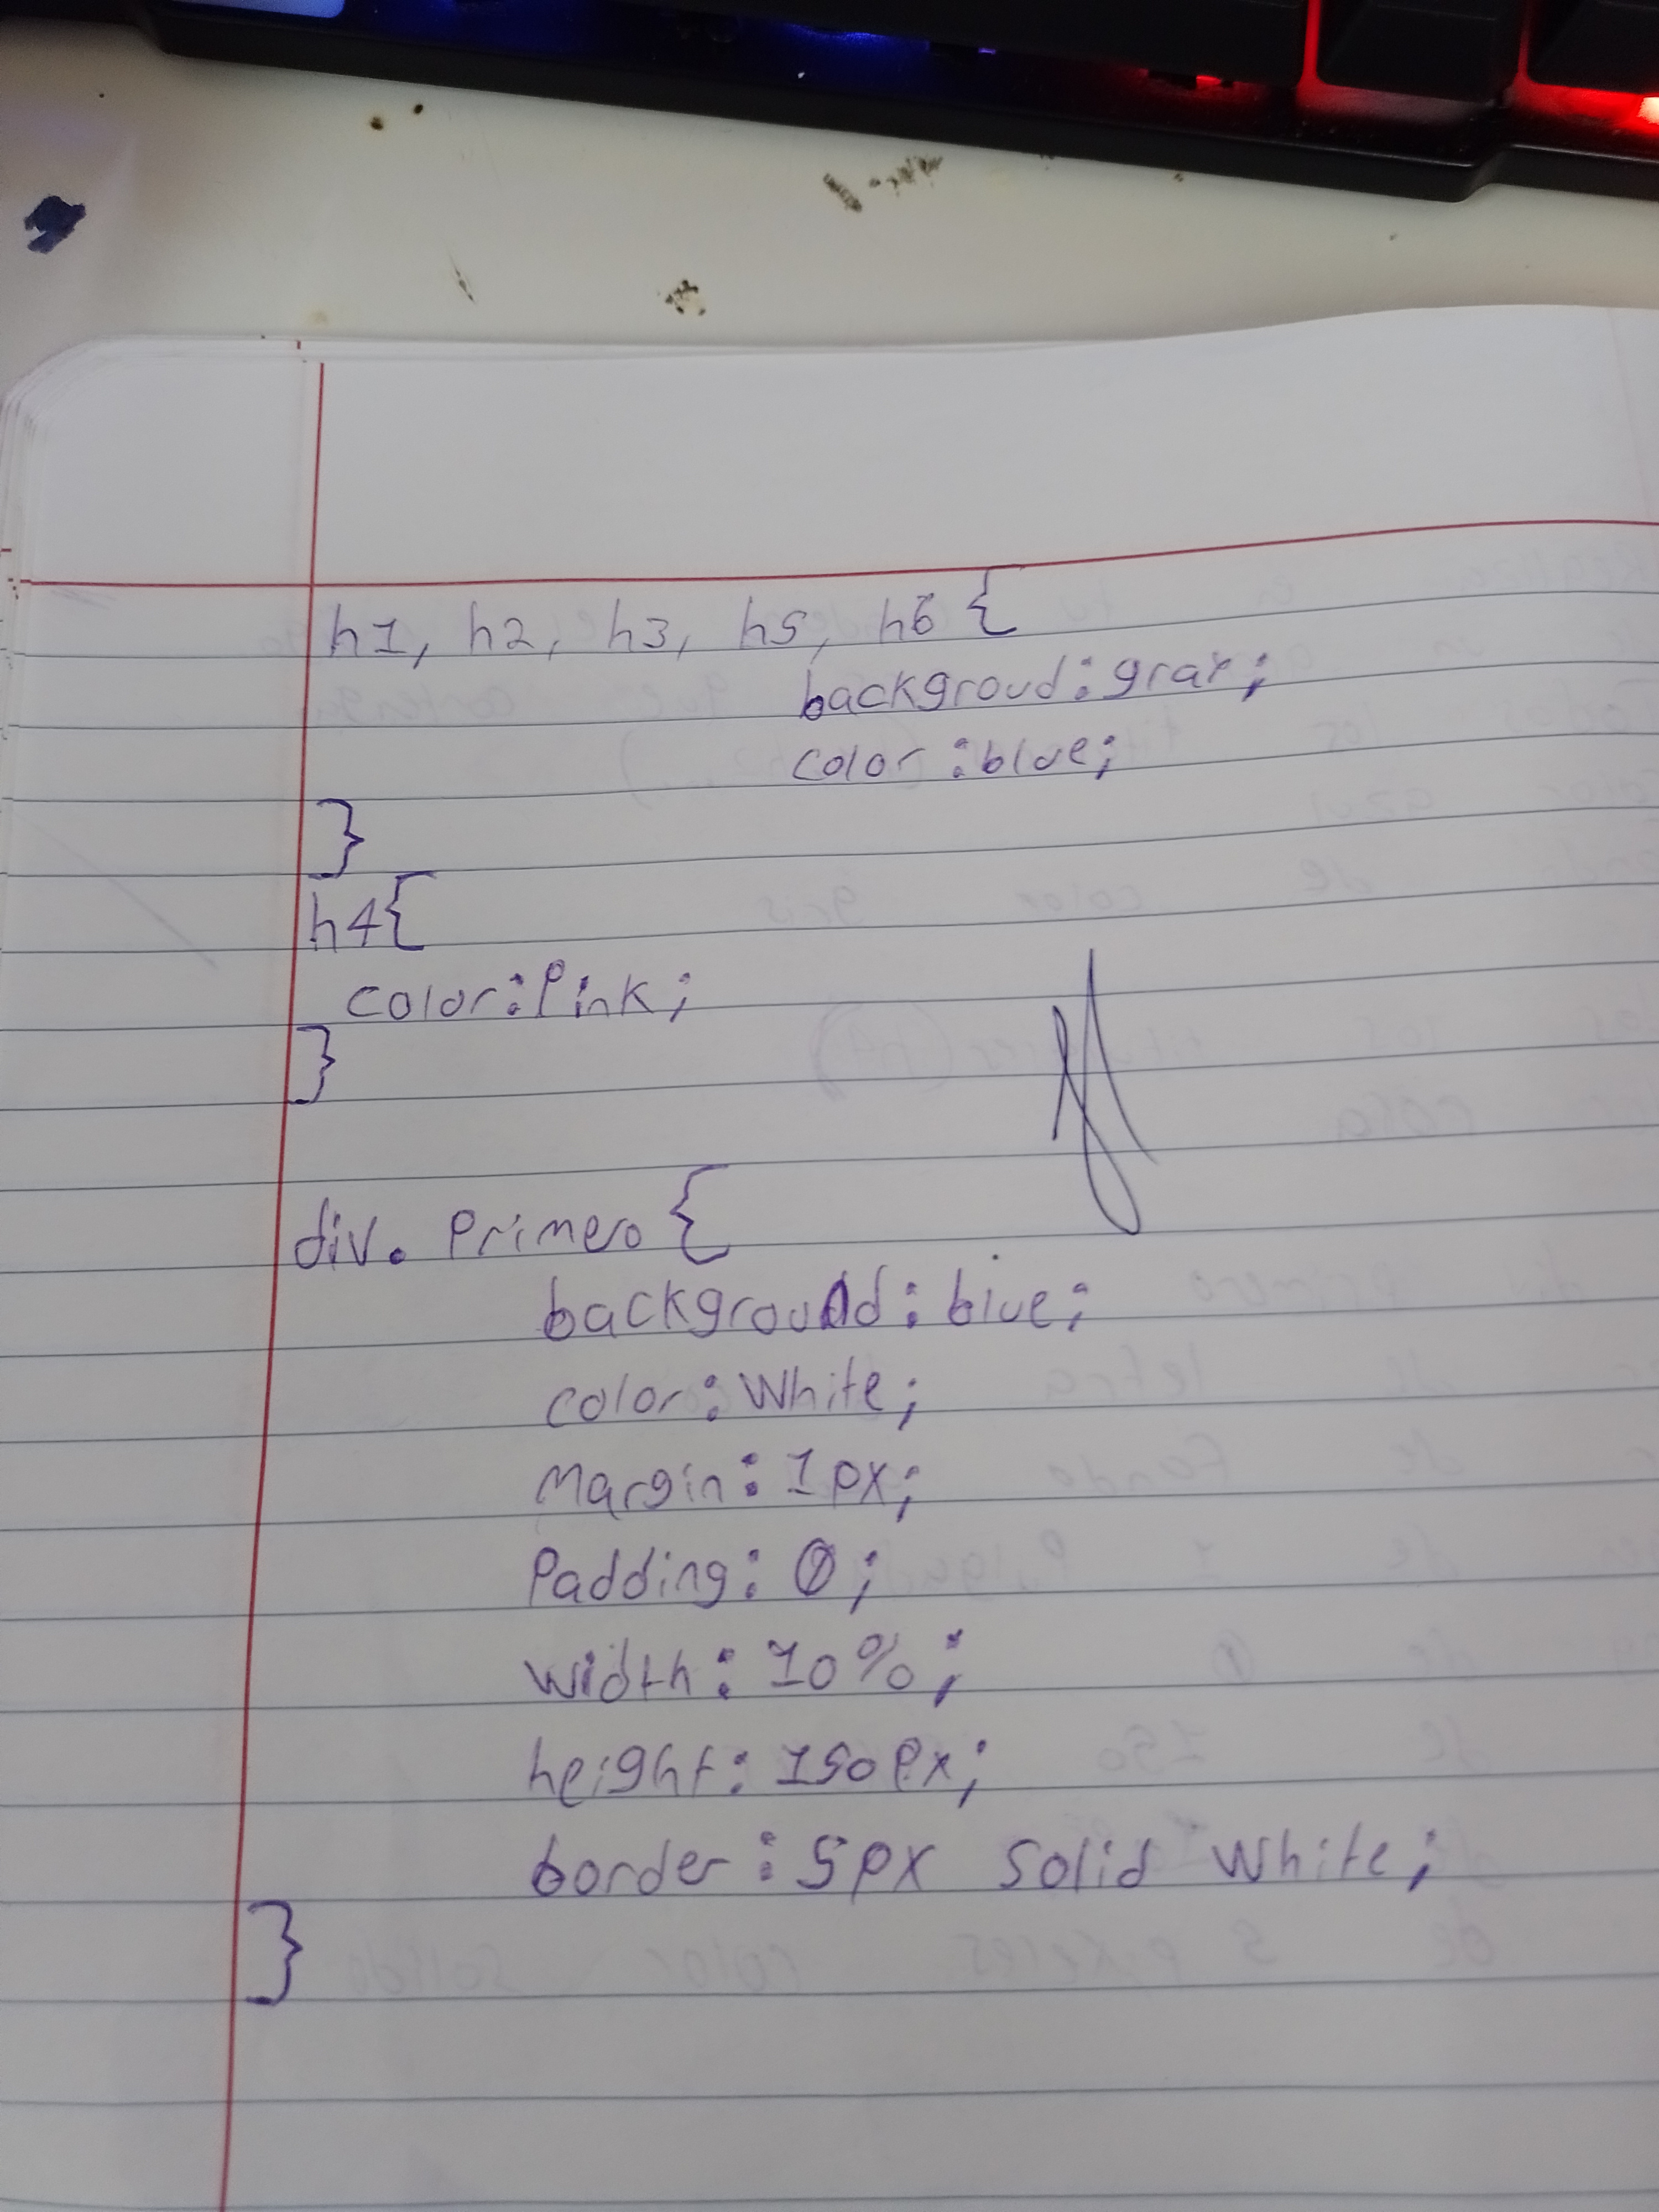 h1, h2, h3, h5, h6 {
backgroud: gray;
color: blue;
}
h4{
color: Pink;
}
div. Primero {
background: blue;
color: White;
Margin: 1px;
Padding: 0;
width: 10%;
height: 150px;
border: 5px solid White;
}